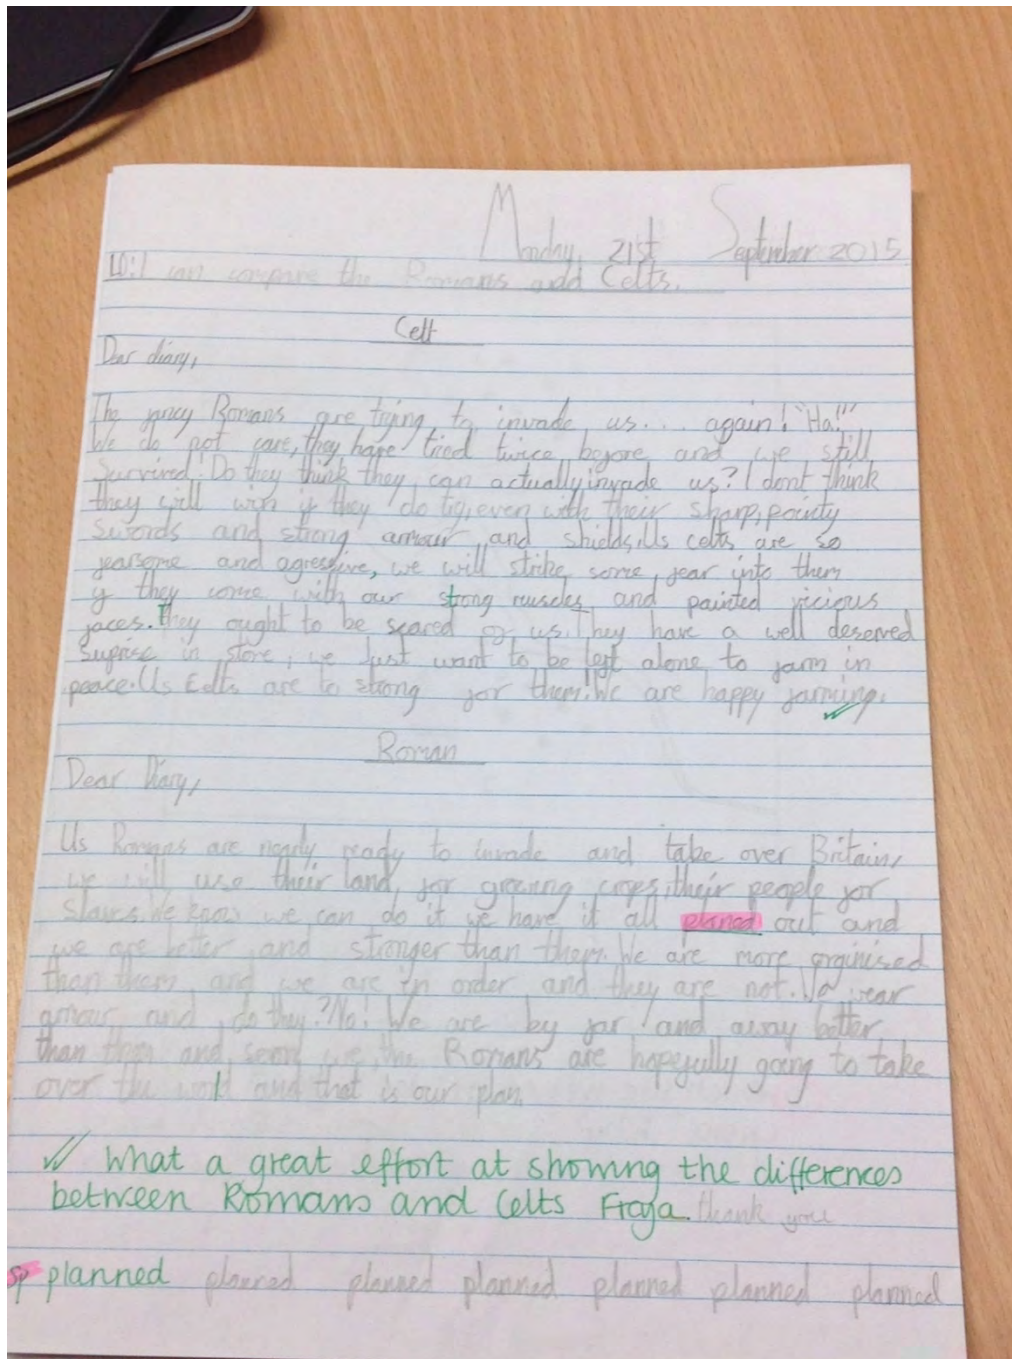 Monday, 21st September 2015
LO: I can compare the Romans and Celts.
Celt
Dear diary,
The Romans are trying to invade us... again! "Ha!"
We do not care, they have tried twice before and we still
survived! Do they think they can actually invade us? I dont think
they will win if they do try, even with their sharp, pointy
swords and strong armour and shields. Us celts are so
fearsome and agressive, we will strike some fear into them
if they come with our strong muscles and painted vicious
faces. they ought to be scared of us. They have a well deserved
suprise in store, we Just want to be left alone to farm in
peace. Us Celts are to strong for them! We are happy farming.
Roman
Dear Diary,
Us Romans are nearly ready to invade and take over Britain,
we will use their land for growing crops, their people for
slaves. We know we can do it we have it all planed out and
we are better and stronger than them. We are more orginised
than them and we are in order and they are not. We wear
amour and do they? No! We are by far and away better
than them and soon we the Romans are hopefully going to take
over the world and that is our plan.
What a great effort at showing the differences
between Romans and Celts Fraya. thank you
sp planned planned planned planned planned planned planned